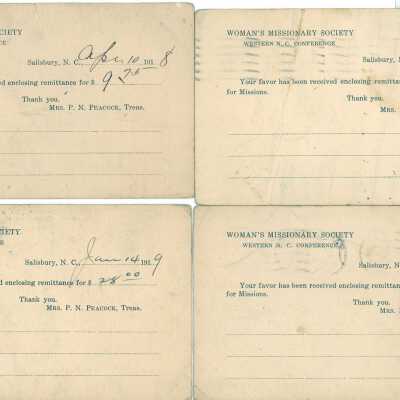 CIETY
Salisbury, N. C. Apr 10 1918
d enclosing remittance for $ 9 25
Thank you.
MRS. P. N. PEACOCK, Treas.
WOMAN'S MISSIONARY SOCIETY
WESTERN N. C. CONFERENCE
Salisbury, N.
Your favor has been received enclosing remittance
for Missions.
Thank
MRS.
CIETY
Salisbury, N. C., Jan 14 1919
d enclosing remittance for $ 28 00
Thank you.
MRS. P. N. PEACOCK, Treas.
WOMAN'S MISSIONARY SOCIETY
WESTERN N. C. CONFERENCE
Salisbury, N.
Your favor has been received enclosing remittance
for Missions.
Thank
MRS.